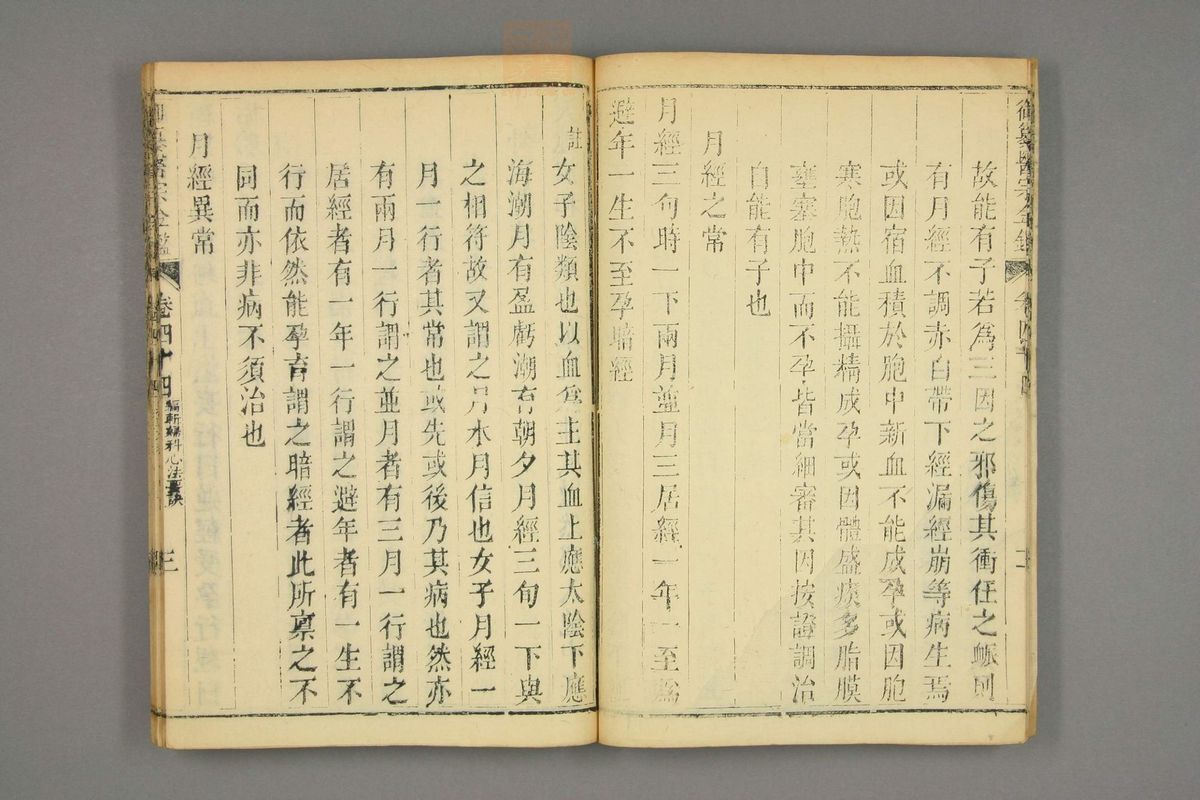 御纂醫宗金鑑 卷四十四 三
故能有子若為三因之邪傷其衝任之脈則
有月經不調赤白帶下經漏經崩等病生焉
或因宿血積於胞中新血不能成孕或因胞
寒胞熱不能攝精成孕或因體盛痰多脂膜
壅塞胞中而不孕皆當細審其因按證調治
自能有子也
月經之常
月經三旬時一下兩月並月三居經一年一至為
避年一生不至孕暗經
註女子陰類也以血為主其血上應太陰下應
海潮月有盈虧潮有朝夕月經三旬一下與
之相符故又謂之月水月信也女子月經一
月一行者其常也或先或後乃其病也然亦
有兩月一行謂之並月者有三月一行謂之
居經者有一年一行謂之避年者有一生不
行而依然能孕育謂之暗經者此所禀之不
同而亦非病不須治也
月經異常
御纂醫宗金鑑 卷四十四 編輯婦科心法要訣 三